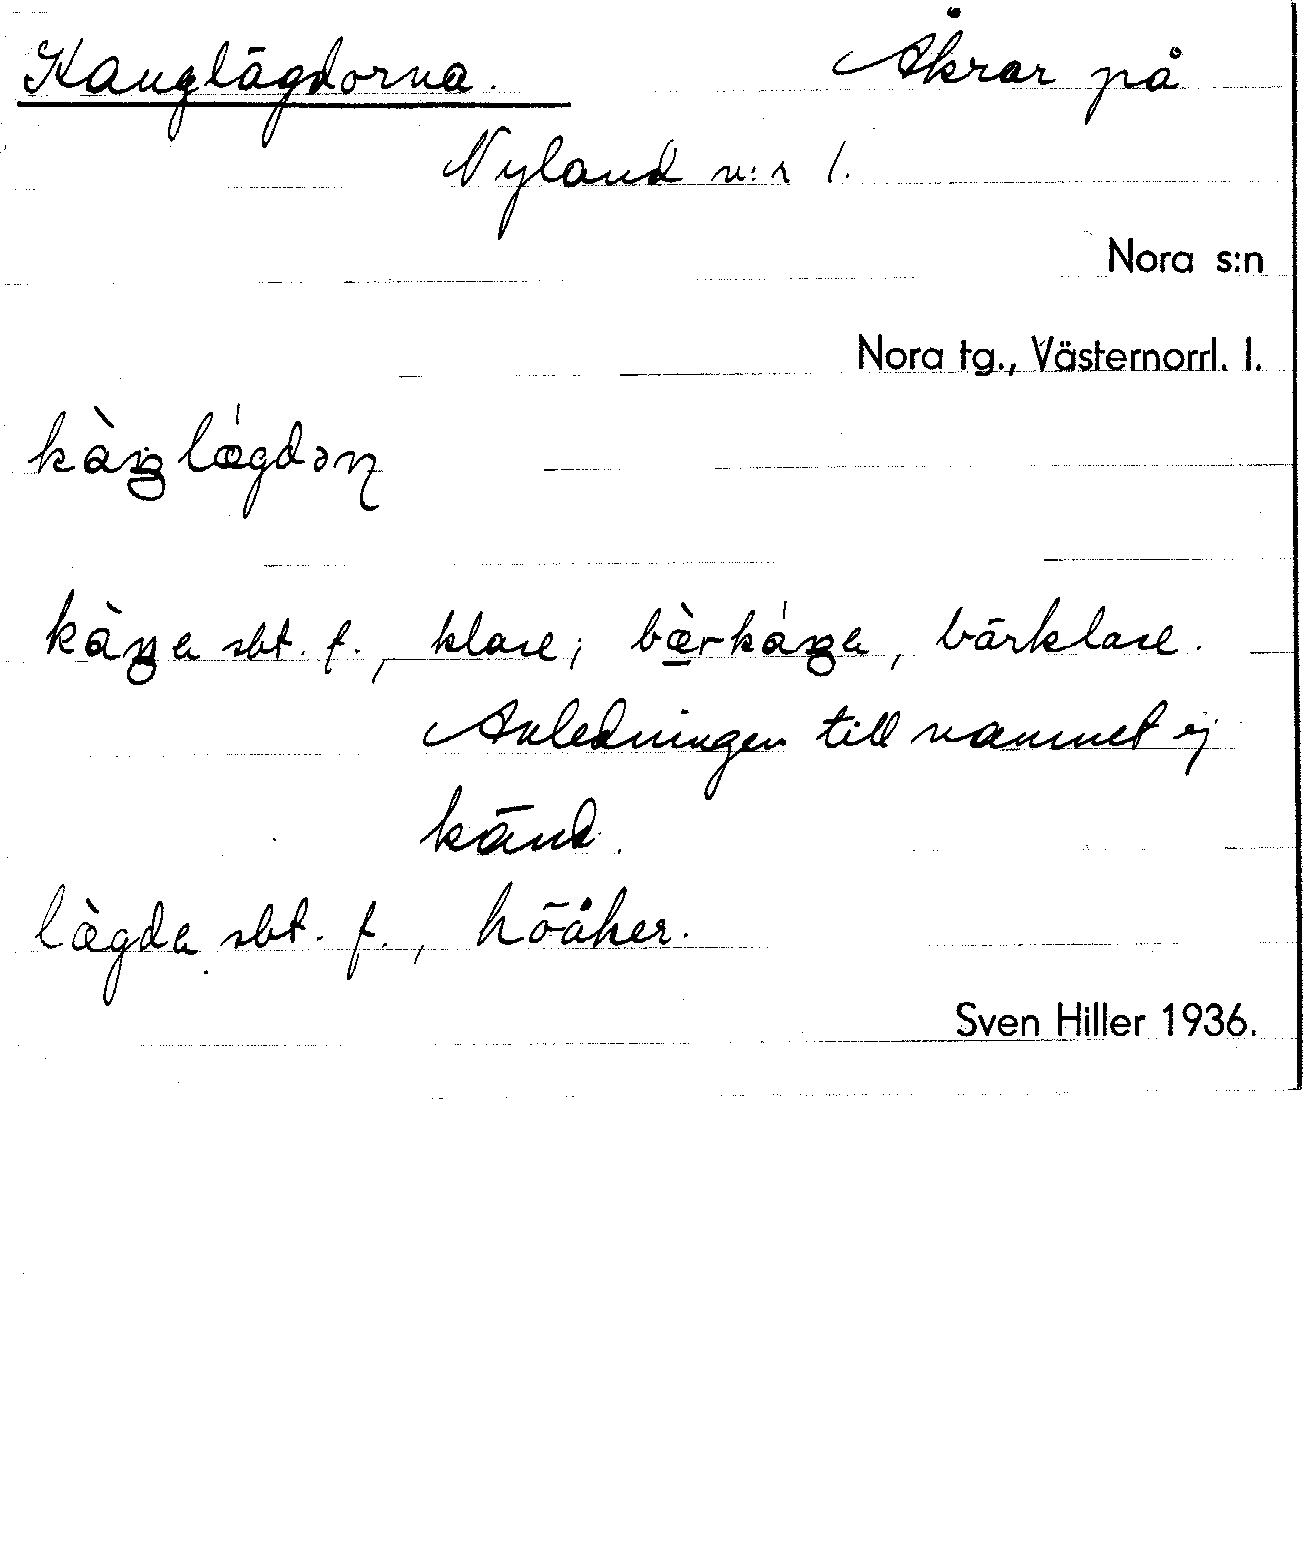 Kanglägdorna. Åkrar på
Nyland n:r 1.
Nora s:n
Nora tg., Västernorrl. l.
kàŋlǽgdəɳ
kàŋa sbt. f., klase; bæ̀rkáŋa, bärklase.
Anledningen till namnet ej
känd.
læ̀gda sbt. f., höåker.
Sven Hiller 1936.